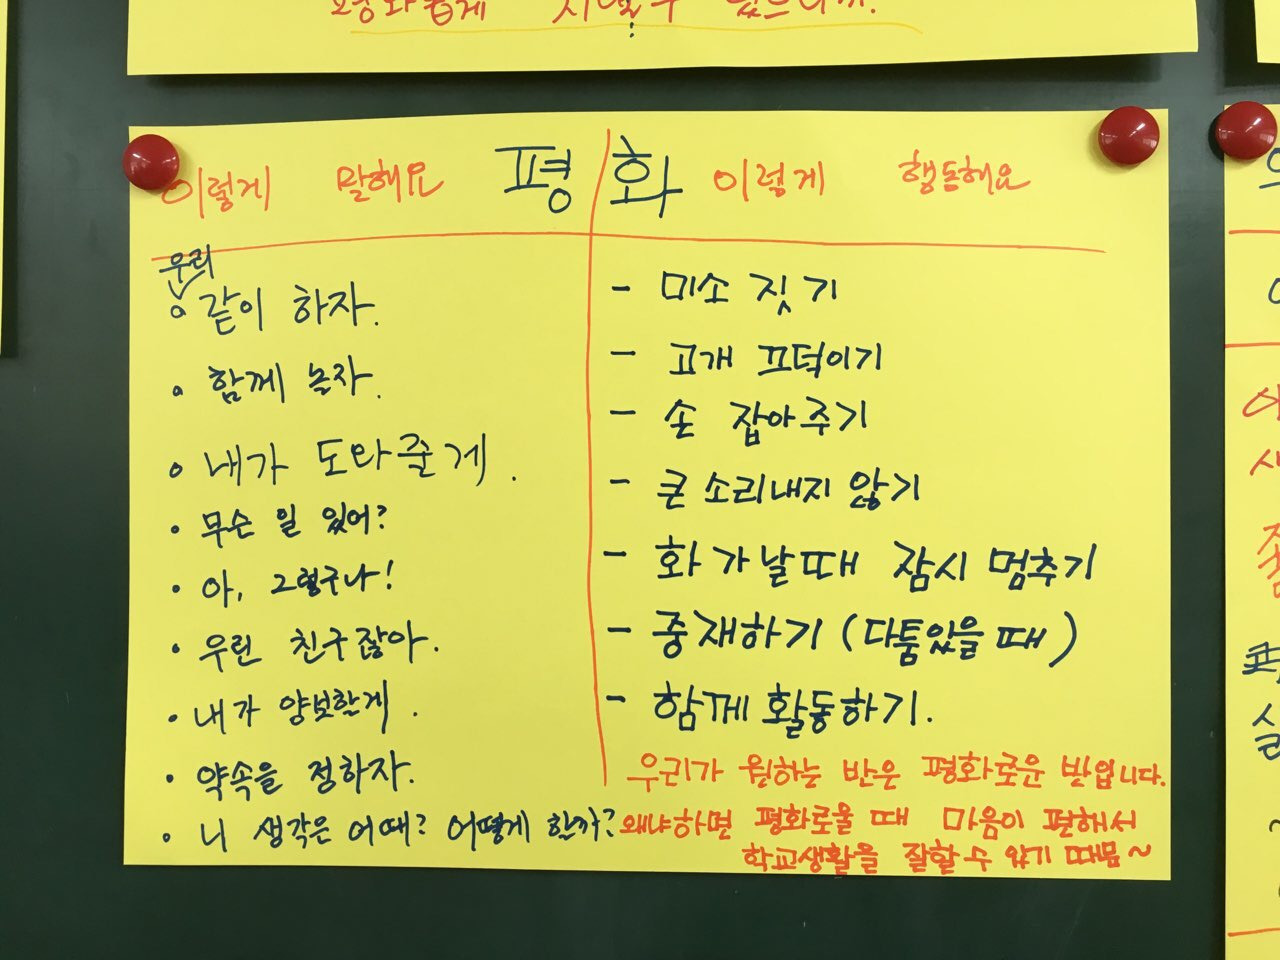 평화롭게 지낼 수 있으니까.
평화
이렇게 말해요
우리 같이 하자.
함께 놀자.
내가 도와줄게.
무슨 일 있어?
아, 그렇구나!
우린 친구잖아.
내가 양보할게.
약속을 정하자.
니 생각은 어때? 어떻게 할까?
이렇게 행동해요
- 미소 짓기
- 고개 끄덕이기
- 손 잡아주기
- 큰 소리내지 않기
- 화가날때 잠시 멈추기
- 중재하기 (다툼있을 때)
- 함께 활동하기.
우리가 원하는 반은 평화로운 반입니다.
왜냐하면 평화로울 때 마음이 편해서
학교생활을 잘할 수 있기 때문~